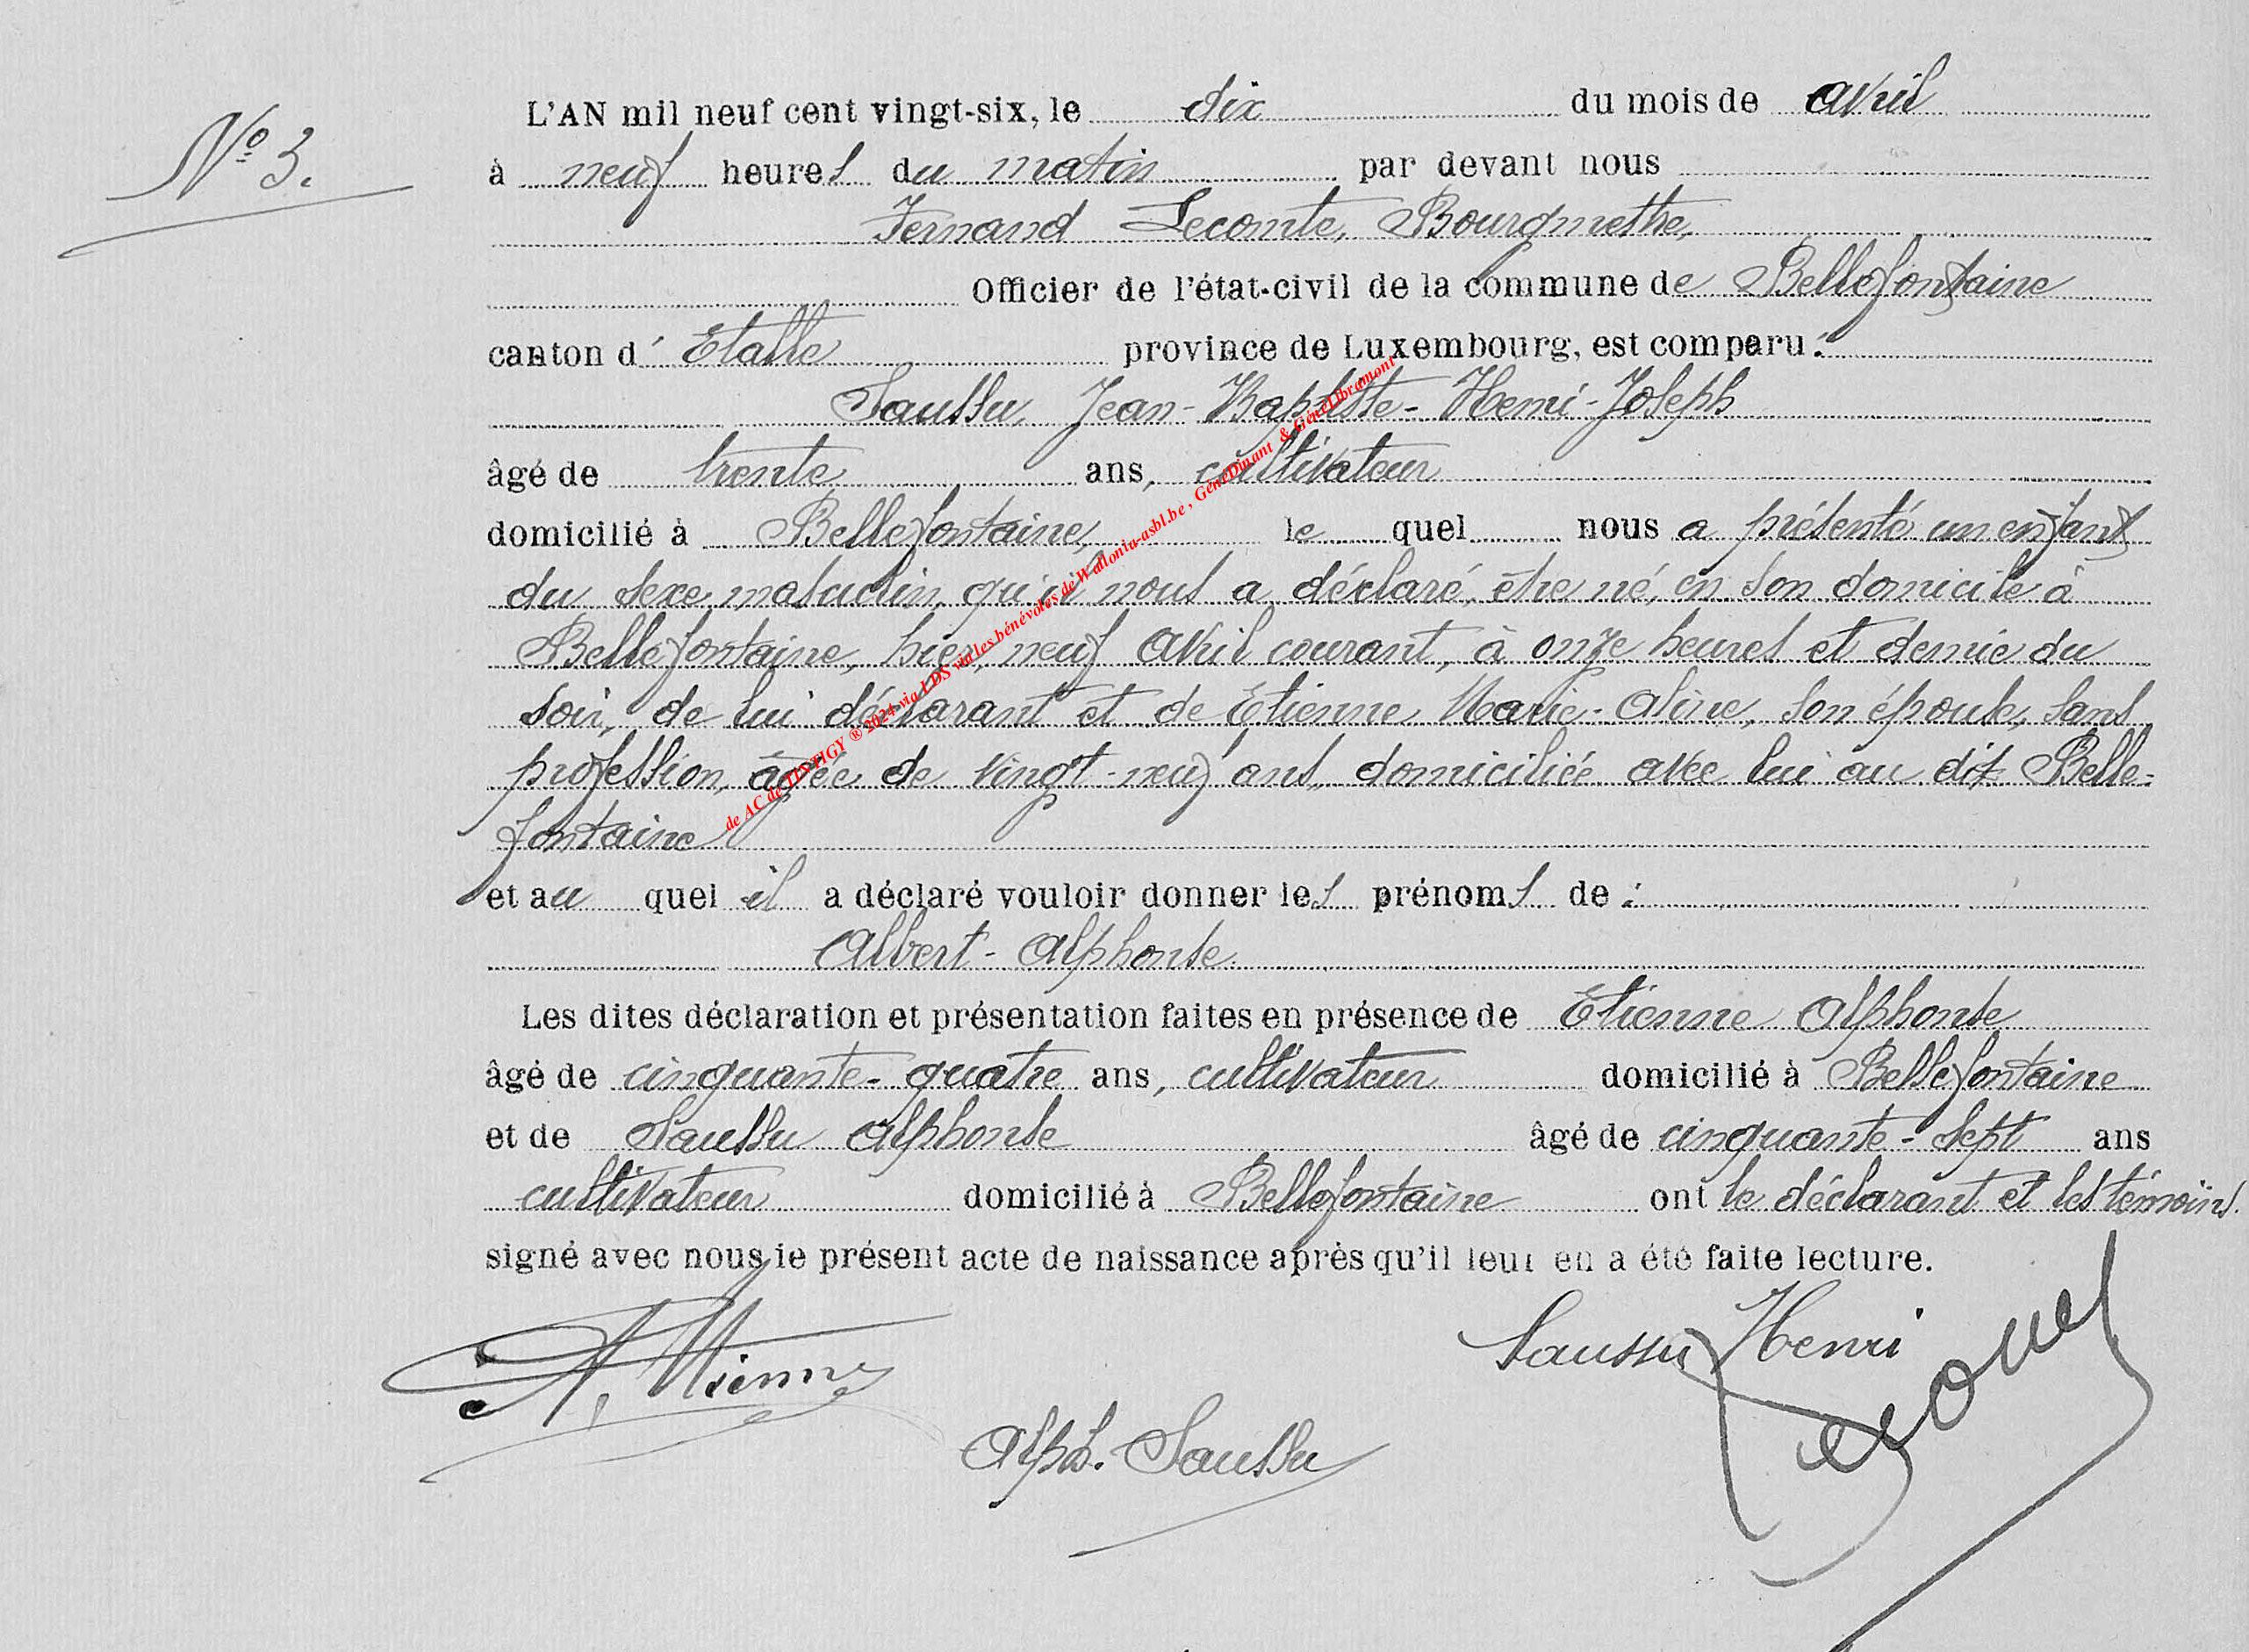 N° 3.
L'AN mil neuf cent vingt-six, le dix du mois de avril
à neuf heures du matin par devant nous
Fernand Lecomte, Bourgmestre,
Officier de l'état-civil de la commune de Bellefontaine
canton d'Etalle province de Luxembourg, est comparu :
Saussu, Jean-Baptiste-Henri-Joseph
âgé de trente ans, cultivateur
domicilié à Bellefontaine, le quel nous a présenté un enfant
du sexe masculin, qu'il nous a déclaré, être né, en son domicile à
Bellefontaine, hier, neuf avril courant, à onze heures et demie du
soir, de lui déclarant et de Etienne, Marie-Aline, son épouse, sans
profession, âgée de vingt-neuf ans, domiciliée avec lui au dit Belle-
fontaine
et au quel il a déclaré vouloir donner les prénoms de :
Albert-Alphonse.
Les dites déclaration et présentation faites en présence de Etienne Alphonse
âgé de cinquante-quatre ans, cultivateur domicilié à Bellefontaine
et de Saussu Alphonse âgé de cinquante-sept ans
cultivateur domicilié à Bellefontaine ont le déclarant et les témoins
signé avec nous le présent acte de naissance après qu'il leur en a été faite lecture.
A. Etienne
Saussu Henri
Alph. Saussu
de AC de TINTIGY ® 2024 via LDS via les bénévoles de Wallonia-asbl.be, GénéDinant & GénéLibramont